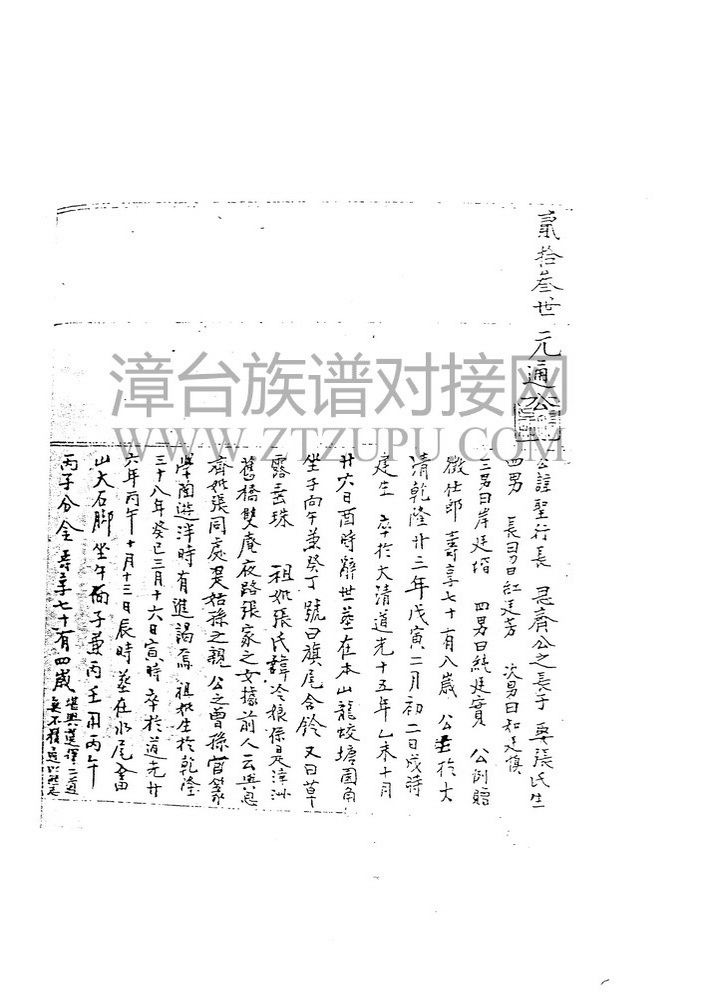 貳拾叁世 元通公
公諱聖行長 忌齋公之長子 娶張氏生
四男 長曰紅廷芳 次男曰和廷慎
三男曰岸廷楷 四男曰純廷實 公例贈
徵仕郎 壽享七十有八歲 公生於大
清乾隆廿三年戊寅二月初二日戌時
建生 卒於大清道光十五年乙未十月
廿六日酉時辭世葬在本山龍蛟塘圓角
坐子向午兼癸丁 號曰旗尾含鈴 又曰草
露垂珠 祖妣張氏諱冷娘係是漳洲
舊橋雙庵夜路張家之女據前人云與忌
齋妣張同處是姑孫之親 公之曾孫
學陶遊泮時有進謁焉 祖妣生於乾隆
三十八年癸巳三月十六日寅時 卒於道光廿
六年丙午十月十三日辰時 葬在水尾畬田
山大石腳 坐午向子兼丙壬用丙午
丙子分金 壽享七十有四歲
漳台族谱对接网
WWW.ZTZUPU.COM